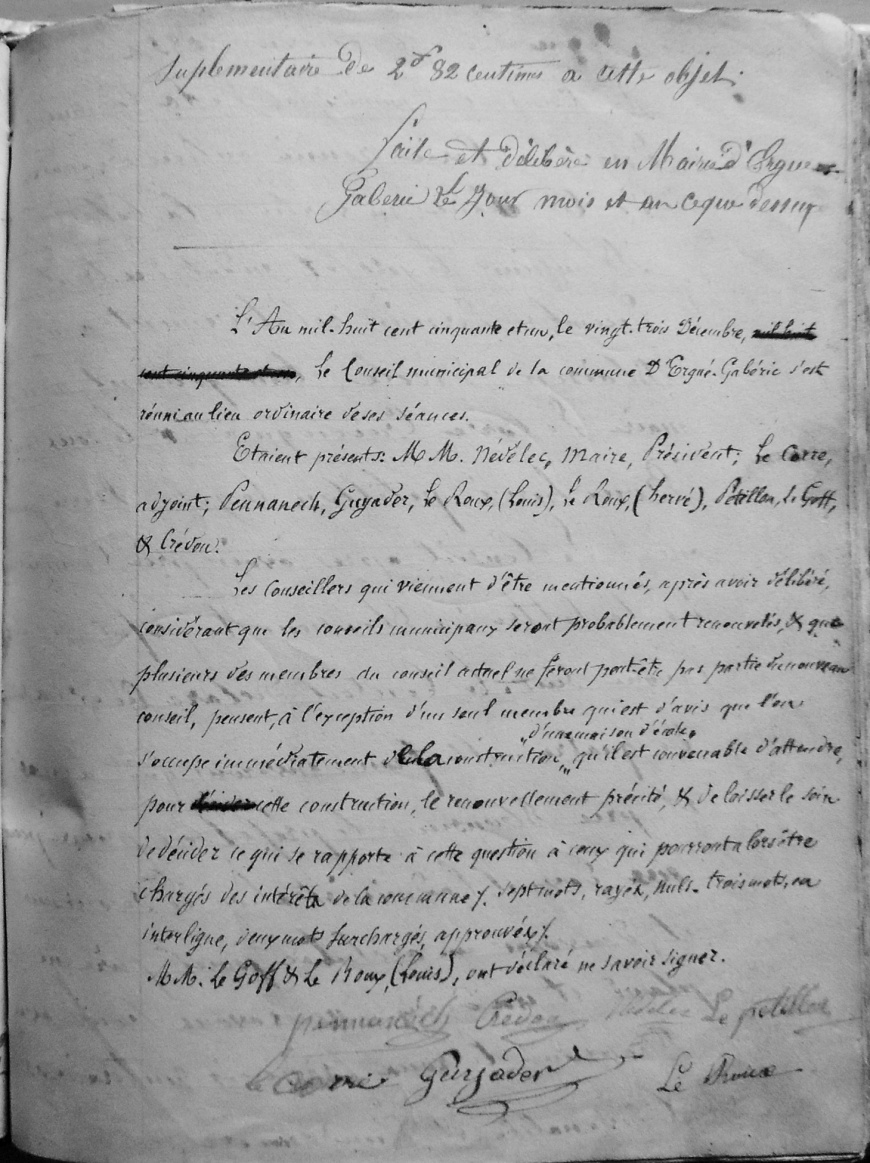 Suplementaire De 2f 82 centimes a cette objet.
faite et Délibéré en Mairie d'Ergue
Gaberic Le Jour mois et an ceque dessus
L'An mil-huit cent cinquante et un, le vingt-trois Décembre, mil huit
cent cinquante et un, Le Conseil municipal de la commune D'Ergué-Gabéric s'est
réuni au lieu ordinaire de ses séances.
Etaient présents: M M. Névélec, Maire, Président; Le Corre,
adjoint; Pennanech, Guyader, Le Roux, (Louis), Le Roux, (hervé), Pétillon, Le Goff,
& Crédou.
Les Conseillers qui viennent d'être mentionnés, après avoir délibéré,
considérant que les conseils municipaux seront probablement renouvelés, & que
plusieurs des membres du conseil actuel ne feront peut-être pas partie du nouveau
conseil, pensent, à l'exception d'un seul membre qui est d'avis que l'on
"d'une maison d'école"
s'occupe immédiatement de la construction, qu'il est convenable d'attendre,
pour décider cette construction, le renouvellement précité, & de laisser le soin
de décider ce qui se rapporte à cette question à ceux qui pourront alors être
chargés des intérêts de la commune ./. sept mots, rayés, nuls. trois mots, en
interligne, deux mots surchargés, approuvés ./.
M M. Le Goff & Le Roux, (Louis), ont déclaré ne savoir signer.
pennanech Crédou Nédélec Le petillon
Le Corre Guyader Le Roux